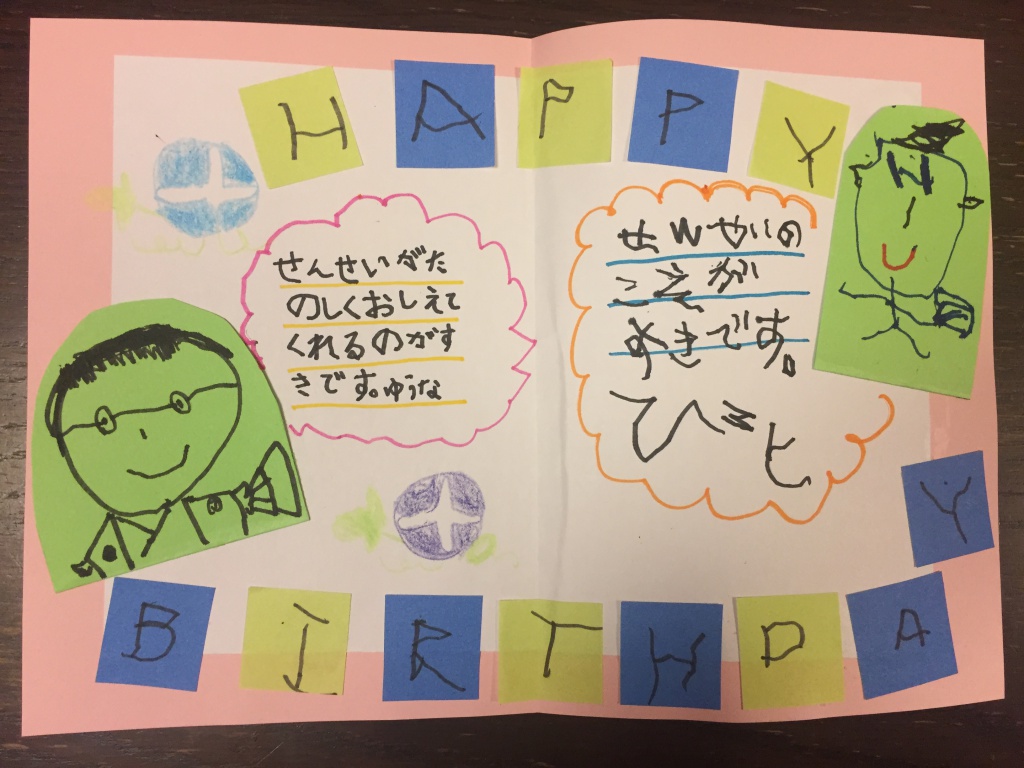 HAPPY
せんせいがた
のしくおしえて
くれるのがす
きです。ゆうな
せんせいの
こえが
すきです。
びと
BIRTHDAY